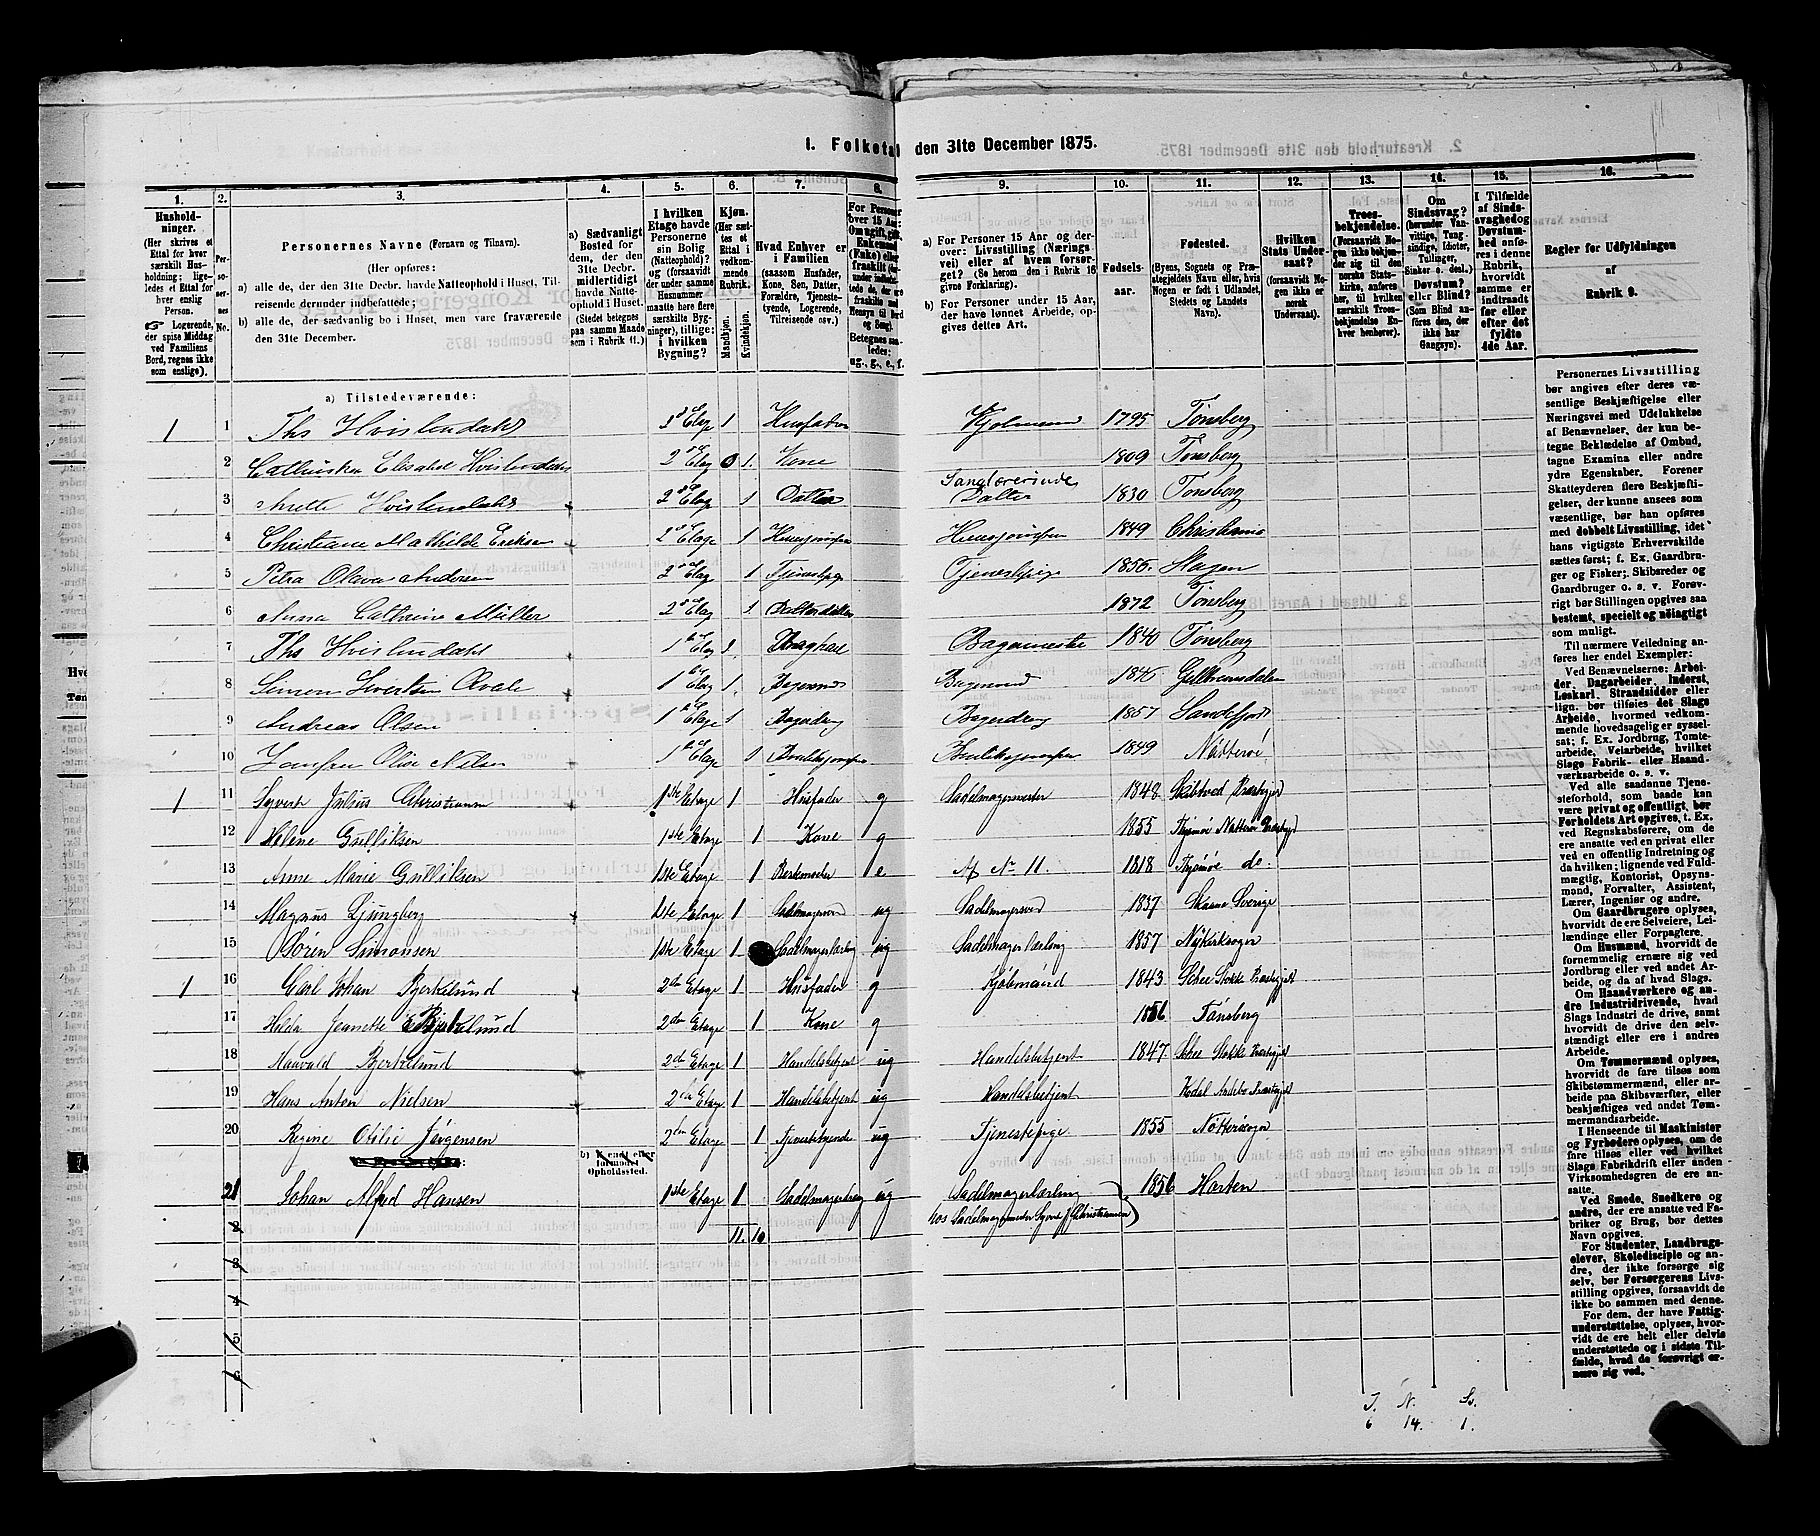 1. Folketal den 31te December 1875.
1. 2. 3. 4. 5. 6. 7. 8. 9. 10. 11. 12. 13. 14. 15. 16.
Hushold-
ninger.
(Her skrives et
Ettal for hver
særskilt Hus-
holdning; lige-
ledes et Ettal
for hver enslig
Person.
☞ Logerende,
der spise Middag
ved Familiens
Bord, regnes ikke
som enslige).
Per-
so-
ner-
nes
No.
Personernes Navne (Fornavn og Tilnavn).
(Her opføres:
a) alle de, der den 31te Decbr. havde Natteophold i Huset, Til-
reisende derunder indbefattede;
b) alle de, der sædvanlig bo i Huset, men vare fraværende
den 31te December.
a) Sædvanligt
Bosted for
dem, der den
31te Decbr.
midlertidigt
havde Natte-
ophold i Huset.
(Stedet betegnes
paa samme Maade
som i Rubrik 11.)
I hvilken
Etage havde
Personerne
sin Bolig
(Natteophold)?
og (forsaavidt
der under samme
Husnummer
maatte høre flere
særskilte Byg-
ninger), tillige:
i hvilken
Bygning?
Kjøn.
(Her sæt-
tes et
Ettal i
vedkom-
mende
Rubrik.)
Mandkjøn.
Kvindekjøn.
Hvad Enhver er
i Familien
(saasom Husfader,
Kone, Søn, Datter,
Forældre, Tjeneste-
tyende, Logerende,
Tilreisende osv.)
For Personer
over 15 Aar:
Om ugift, gift,
Enkemand
(Enke) eller
fraskilt
Betegnes saa-
ledes:
ug., g., e., f.
a) For Personer 15 Aar og der-
over: Livsstilling (Nærings-
vei) eller af hvem forsør-
get? (Se herom den i Rubrik 16
givne Forklaring).
b) For Personer under 15 Aar,
der have lønnet Arbeide, op-
gives dettes Art.
Fødsels-
aar.
Fødested.
(Byens, Sognets og Præ-
stegjeldets Navn eller, hvis
Nogen er født i Udlandet,
Stedets og Landets
Navn).
Hvilken
Stats Under-
saat?
(forsaavidt No-
gen ikke er
norsk
Undersaat).
Troes-
bekjendelse.
(Forsaavidt No-
gen ikke be-
kjender sig til
den norske
Stats-
kirke, anføres
her, til hvilken
særskilt Troes-
bekjendelse En-
hver henhører).
Om
Sindssvag?
(herunder Van-
vittige, Tung-
sindige, Idioter,
Tullinger,
Sinker o. desl.)
Døvstum?
eller Blind?
(Som Blind an-
føres den, der
ikke har
Gangsyn).
I Tilfælde
af Sinds-
svaghed og
Døvstum-
hed anfø-
res i denne
Rubrik,
hvorvidt
samme er
indtraadt
før eller
efter det
fyldte
4de Aar.
Regler for Udfyldningen
af
Rubrik 9.
a) Tilstedeværende:
1 1 Ths Hvistendahl 2d Etag 1 Husfader Kjobmand 1795 Tønsberg
2 Cathrine Elisabet Hvistendahl 2d Etag 0 1. Kone 1809 Tønsberg
3 Anette Hvistendahl 2d Etag 1 Datter Sanglærerinde Datter 1830 Tønsberg
4 Christiane Mathilde Eriksen 2d Etage 1 Husjomfru Husjomfru 1849 Christiania
5 Petra Olava Andersen 2d Etag 1 Tjenestepige Tjenestepige 1856. Slagen
6 Anna Cathrine Müller 2d Etag 1. Datterdatter 1872 Tønsberg
7 Ths Hvistendahl 1ste Etag 1. Bagermester 1840 Tønsberg
8 Simen Sivertsen Qvale 1ste Etag 1. Bagersvend Bagersvend 1846. Gulbrandsdalen
9 Andreas Olsen 1ste Etage 1 Bagerdreng Bagerdreng 1857 Sandefjord
10 Jomfru Olise Nilsen 1ste Etage 0 Butiksjomfru Butiksjomfru 1849 Nøtterø
1 11 Syvert Julius Christiansen 1ste Etage 1 Husfader g Sadelmagermester 1848 Skibtved Præstgjeld
12 Helene Gulliksen 1ste Etage 1 Kone g 1855 Thjømø Nøtterø Præstgjd
13 Anne Marie Gulliksen 1ste Etage 1 e Af No 11 1818 Thjømø do.
14 Magnus Ljungberg 1ste Etage 1 Sadelmagersvend ug Sadelmagersvend 1837 Skaane Sverige
15 Søren Simonsen 1ste Etage 1 Sadelmagerlærling ug Sadelmagerlærling 1857 Nykirksogn
1 16 Carl Johan Bjerkelund 2den Etage 1 Husfader g Kjøbmand 1843 Schee Stokke Præstgjeld
17 Hilda Jeanette Bjerkelund 2den Etage 1 Kone g 1856 Tønsberg
18 Haavald Bjerkelund 2de Etage 1 Handelsbetjent ug Handelsbetjent 1847. Schee Stokke Præstgjeld
19 Hans Anton Nielsen 2den Etage 1 Handelsbetjent ug Handelsbetjent Kodal Andebo Præstgjeld
20 Regine Otilie Jørgensen 2den Etage 1 Tjenestetyende ug Tjenestepige 1855 Nøtterøsogn
b) Kjendt eller
formodet
Opholdssted.
21 Johan Alfred Hansen 1ste Etage 1 Sadelmagerdreng ug Sadelmagerlærling 1856 Horten
hos Sadelmagermester Syvert J Christiansen)
2 11. 10
3
4
5
6
Personernes Livsstilling
bør angives efter deres væ-
sentlige Beskjæftigelse eller
Næringsvei med Udelukkelse
af Benævnelser, der kun be-
tegne Beklædelse af Ombud,
tagne Examina eller andre
ydre Egenskaber. Forener
Skatteyderen flere Beskjæfti-
gelser, der kunne ansees som
væsentlige, bør han opføres
med dobbelt Livsstilling, idet
hans vigtigste Erhvervskilde
sættes først; f. Ex. Gaardbru-
ger og Fisker; Skibsreder og
Gaardbruger o. s. v. Forøv-
rigt bør Stillingen opgives saa
bestemt, specielt og nøiagtigt
som muligt.
Til nærmere Veiledning an-
føres her endel Exempler:
Ved Benævnelserne: Arbei-
der, Dagarbeider, Inderst,
Løskarl, Strandsidder eller
lign. bør tilføies det Slags
Arbeide, hvormed vedkom-
mende hovedsagelig er syssel-
sat; f. Ex. Jordbrug, Tomte-
arbeide, Veiarbeide, hvilket
Slags Fabrik- eller Haand-
værksarbeide o. s. v.
Ved alle saadanne Tjene-
steforhold, som baade kan
være privat og offentligt, bør
Forholdets Art opgives, t. Ex.
ved Regnskabsførere, om de
ere ansatte ved en privat eller
ved en offentlig Indretning og
da hvilken; lignende ved Fuld-
mægtig, Kontorist, Opsyns-
mand, Forvalter, Assistent,
Lærer, Ingeniør og andre.
Om Gaardbrugere oplyses,
hvorvidt de ere Selveiere, Lei-
lændinge eller Forpagtere.
Om Husmænd, hvorvidt de
fornemmelig ernære sig ved
Jordbrug eller ved andet Ar-
beide, og da af hvad Slags.
Om Haandværkere og an-
dre Industridrivende, hvad
Slags Industri de drive, samt
hvorvidt de drive den selv-
stændigt eller ere i andres
Arbeide.
Om Tømmermænd oplyses,
hvorvidt de fare tilsøs som
Skibstømmermænd, eller ar-
beide paa Skibsværfter, eller
beskjæftiges ved andet Tøm-
mermandsarbeide.
I Henseende til Maskinister
og Fyrbødere oplyses, om de
fare tilsøs eller ved hvilket
Slags Fabrikdrift eller anden
Virksomhedsgren de ere an-
satte.
Ved Smede, Snedkere og
andre, der ere ansatte ved Fa-
briker og Brug, bør dettes
Navn opgives.
For Studenter, Landbrugs-
elever, Skoledisciple og an-
dre, der ikke forsørge sig
selv, bør Forsørgerens Livs-
stilling opgives, forsaavidt de
ikke bo sammen med denne.
For dem, der have Fattig-
understøttelse, oplyses, hvor-
vidt de ere helt eller delvis
understøttede og i sidste Til-
fælde, hvad de forøvrigt er-
nære sig ved.
J. N. Sv.
6 14. 1.